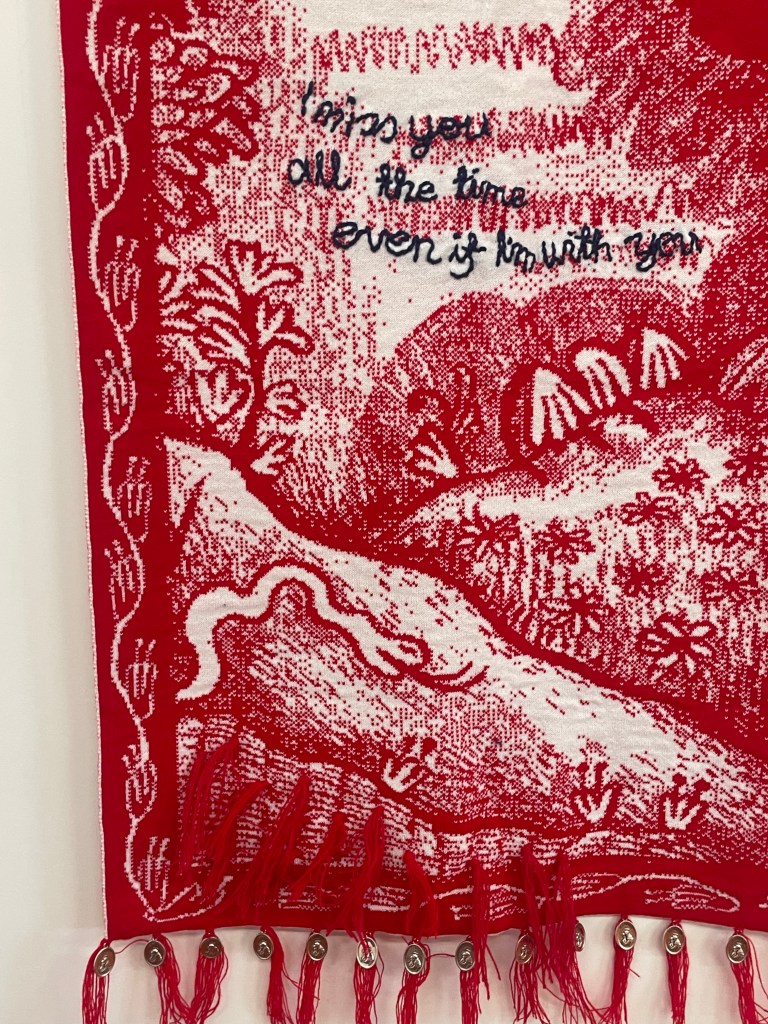 I miss you
all the time
even if I'm with you